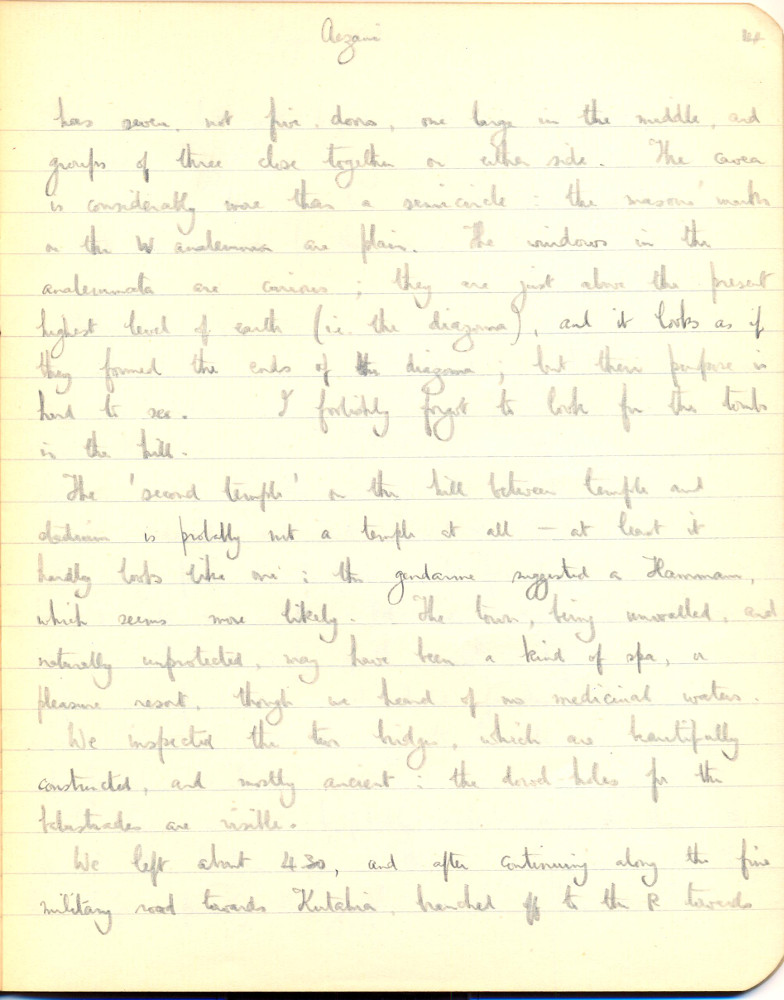 Aezani 14
has seven, not five, doors, one large in the middle, and
groups of three close together on either side. The cavea
is considerably more than a semicircle : the masons' marks
on the W analemma are plain. The windows in the
analemmata are curious ; they are just above the present
highest level of earth (i.e. the diazoma), and it looks as if
they formed the ends of the diazoma ; but their purpose is
hard to see. I foolishly forgot to look for the tombs
in the hill.
The 'second temple' on the hill between temple and
stadium is probably not a temple at all – at least it
hardly looks like one : the gendarme suggested a Hammam,
which seems more likely. The town, being unwalled, and
naturally unprotected, may have been a kind of spa, or
pleasure resort, though we heard of no medicinal waters.
We inspected the two bridges, which are beautifully
constructed, and mostly ancient : the dowel holes for the
balustrades are visible.
We left about 4.30, and after continuing along the fine
military road towards Kutahia, branched off to the R towards